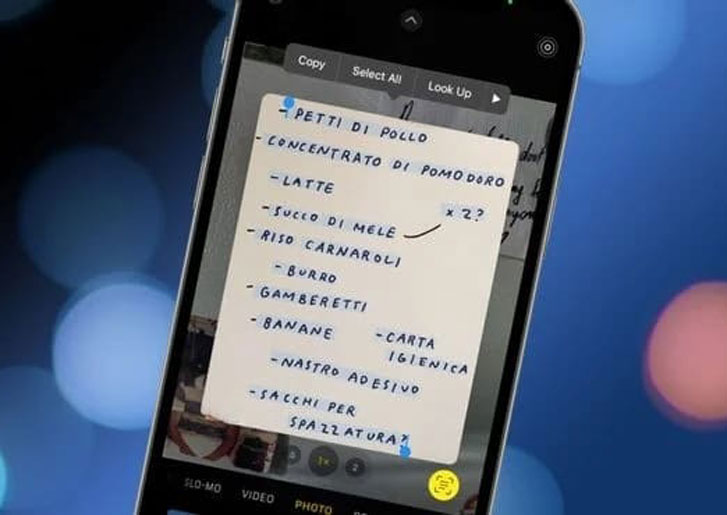 Copy Select All Look Up
- PETTI DI POLLO
- CONCENTRATO DI POMODORO
- LATTE
x 2?
- SUCCO DI MELE
- RISO CARNAROLI
- BURRO
- GAMBERETTI
- BANANE
- CARTA
IGIENICA
- NASTRO ADESIVO
- SACCHI PER
SPAZZATURA?
1x 2
SLO-MO VIDEO PHOTO